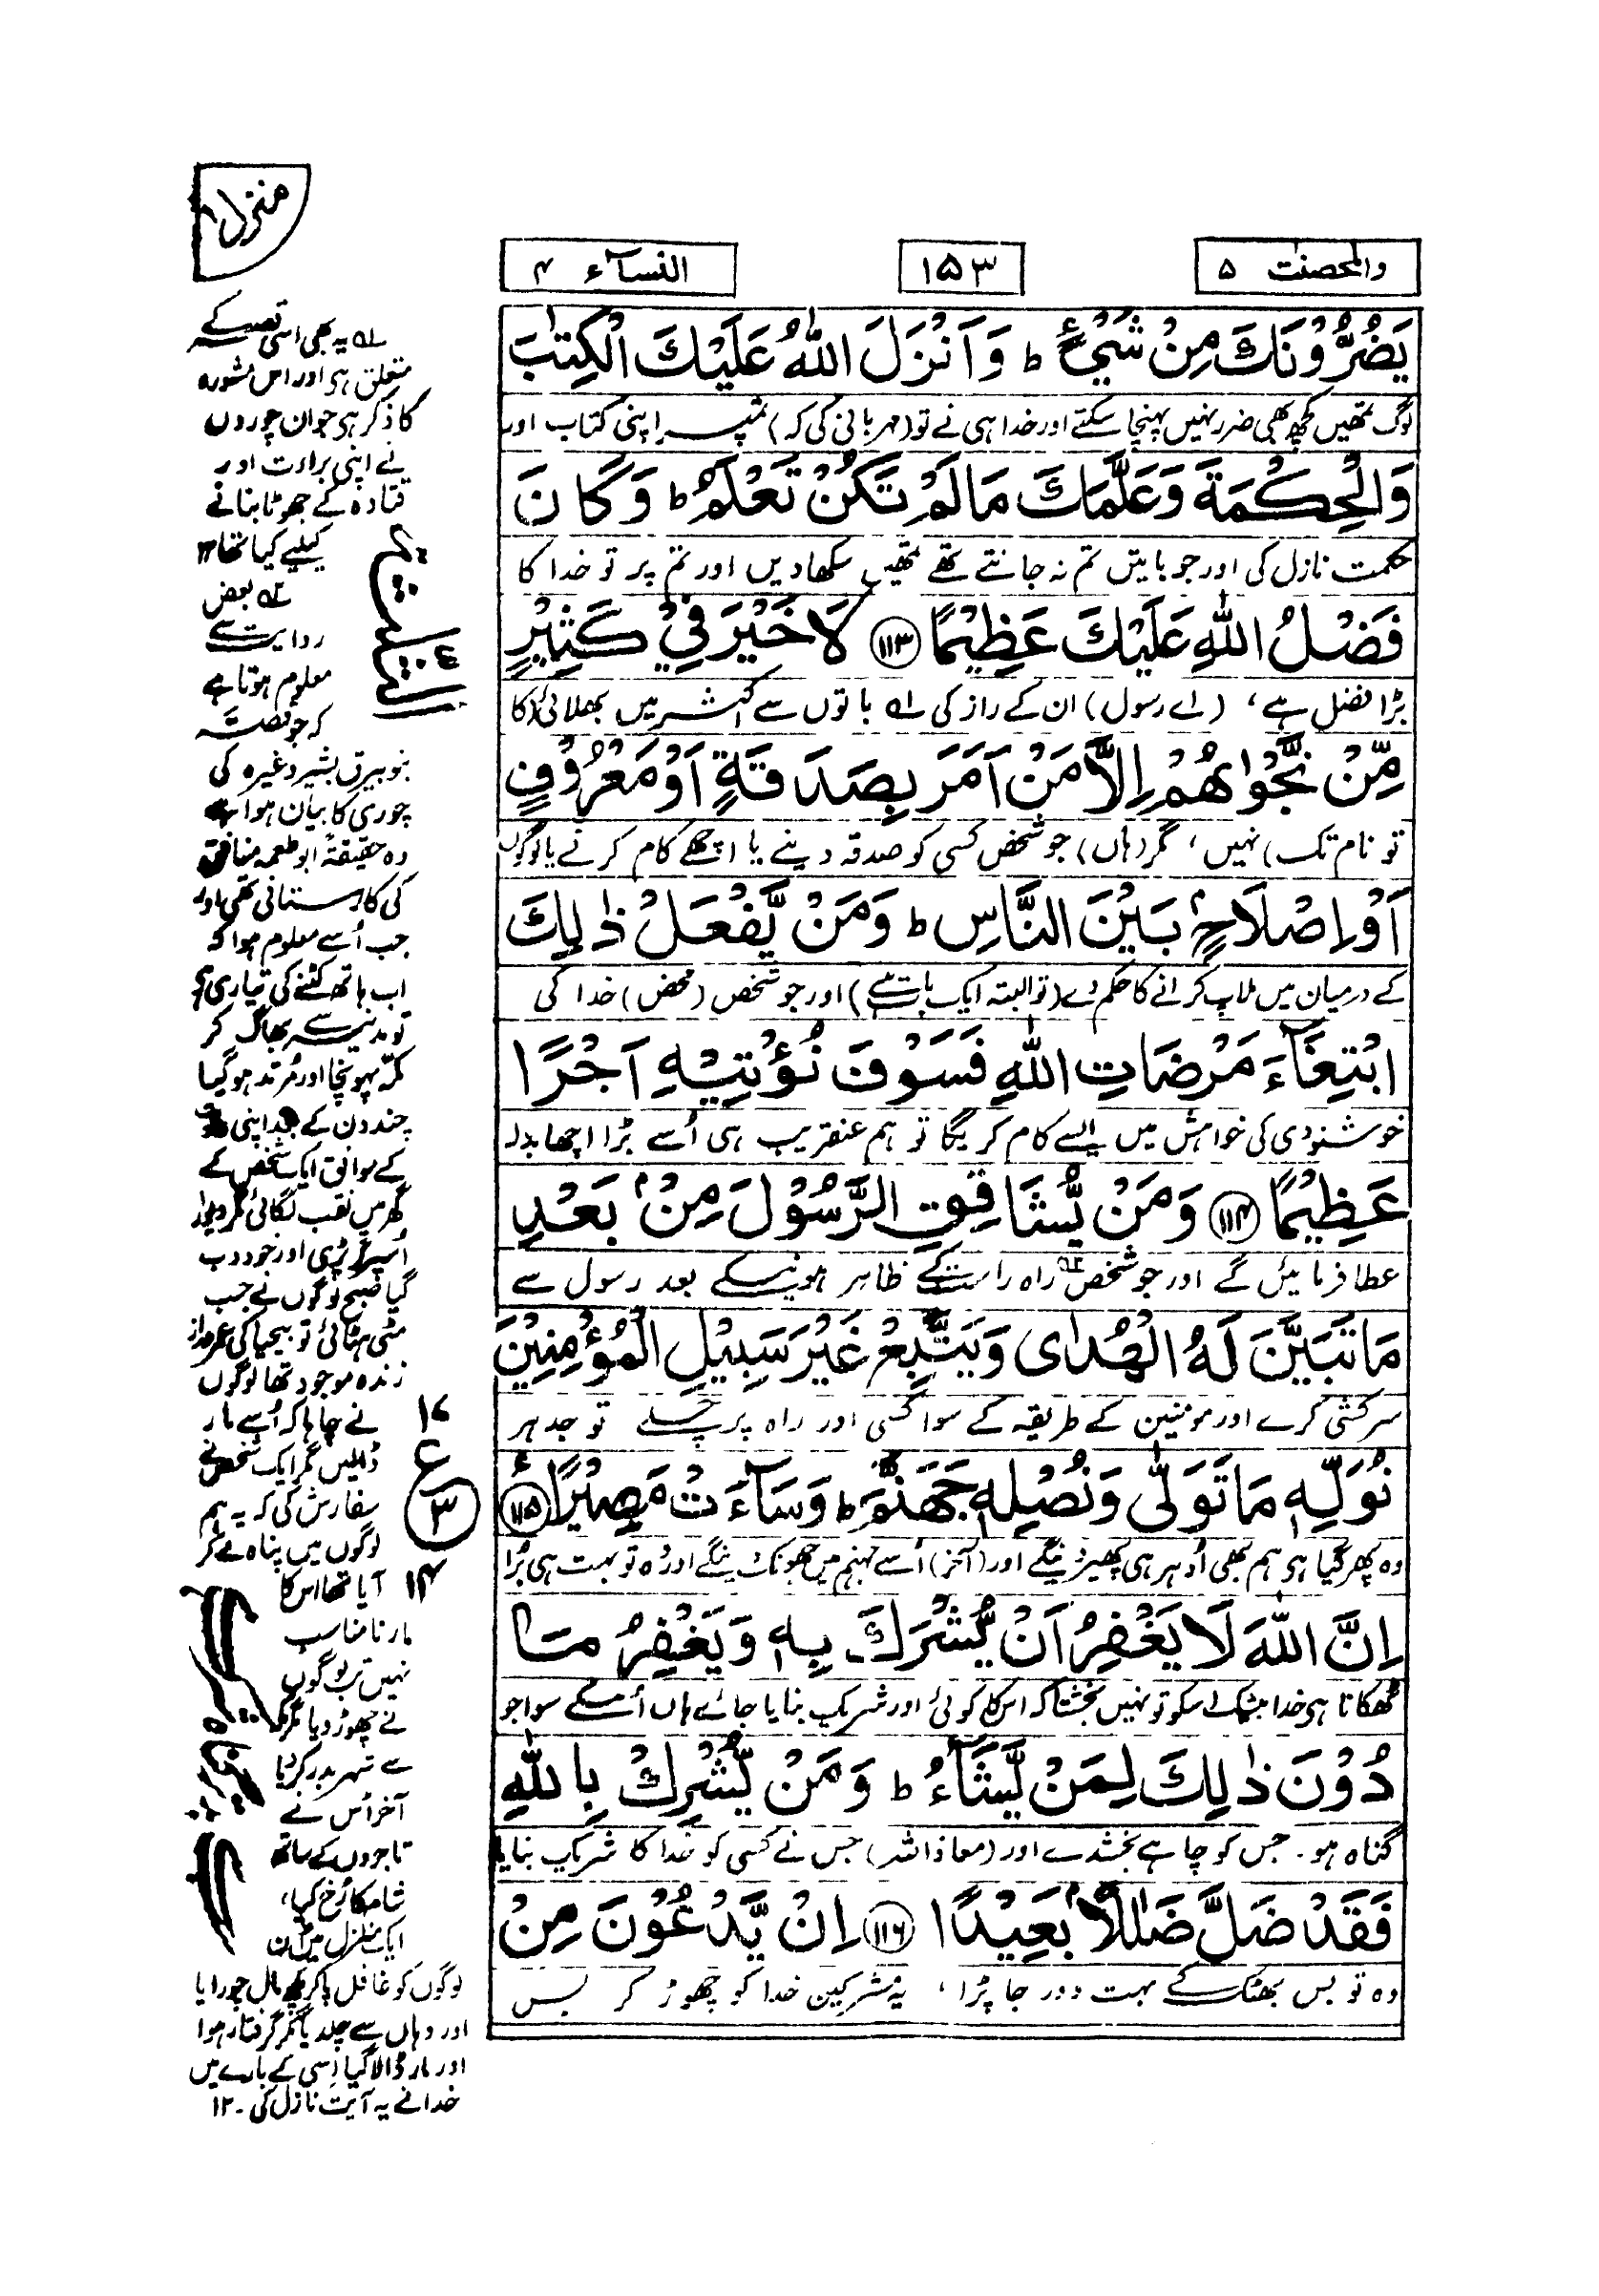 والمحصنت ۵
۱۵۳
النسآء ۴
يَضُرُّوْنَكَ مِنْ شَيْءٍ ؕ وَاَنْزَلَ اللّٰهُ عَلَيْكَ الْكِتٰبَ
لوگ تمھیں کچھ بھی ضرر نہیں پہنچا سکتے اور خدا ہی نے تو (مہربانی کی کہ) تمپر اپنی کتاب اور
وَالْحِكْمَةَ وَعَلَّمَكَ مَا لَمْ تَكُنْ تَعْلَمُ ؕ وَكَانَ
حکمت نازل کی اور جو باتیں تم نہ جانتے تھے تمھیں سکھادیں اور تم پر تو خدا کا
فَضْلُ اللّٰهِ عَلَيْكَ عَظِيْمًا ﴿۱۱۳﴾ لَا خَيْرَ فِيْ كَثِيْرٍ
بڑا فضل ہے، (اے رسول) ان کے راز کی ۱ے باتوں سے اکثر میں بھلائی (کا
مِّنْ نَّجْوٰىهُمْ اِلَّا مَنْ اَمَرَ بِصَدَقَةٍ اَوْ مَعْرُوْفٍ
تو نام تک) نہیں، مگر (ہاں) جو شخص کسی کو صدقہ دینے یا اچھے کام کرنے یا لوگوں
اَوْ اِصْلَاحٍۢ بَيْنَ النَّاسِ ؕ وَمَنْ يَّفْعَلْ ذٰلِكَ
کے درمیان میں ملاپ کرانے کا حکم دے (تو البتہ ایک بات ہے) اور جو شخص (محض) خدا کی
ابْتِغَآءَ مَرْضَاتِ اللّٰهِ فَسَوْفَ نُؤْتِيْهِ اَجْرًا
خوشنودی کی خواہش میں ایسے کام کریگا تو ہم عنقریب ہی اُسے بڑا اچھا بدلہ
عَظِيْمًا ﴿۱۱۴﴾ وَمَنْ يُّشَاقِقِ الرَّسُوْلَ مِنْۢ بَعْدِ
عطا فرمائیں گے اور جو شخص ۲ے راہ راست کے ظاہر ہونیکے بعد رسول سے
مَا تَبَيَّنَ لَهُ الْهُدٰى وَيَتَّبِعْ غَيْرَ سَبِيْلِ الْمُؤْمِنِيْنَ
سرکشی کرے اور مومنین کے طریقہ کے سوا کسی اور راہ پر چلے تو جدہر
نُوَلِّهٖ مَا تَوَلّٰى وَنُصْلِهٖ جَهَنَّمَ ؕ وَسَآءَتْ مَصِيْرًا ﴿۱۱۵﴾
وہ پھر گیا ہی ہم بھی اُدہر ہی پھیر دینگے اور (آخر) اُسے جہنم میں جھونک دینگے اور وہ تو بہت ہی بُرا
اِنَّ اللّٰهَ لَا يَغْفِرُ اَنْ يُّشْرَكَ بِهٖ وَيَغْفِرُ مَا
ٹھکانا ہی خدا بیشک اسکو تو نہیں بخشتا کہ اسکا کوئی اور شریک بنایا جائے ہاں اُسکے سوا جو
دُوْنَ ذٰلِكَ لِمَنْ يَّشَآءُ ؕ وَمَنْ يُّشْرِكْ بِاللّٰهِ
گناہ ہو۔ جس کو چاہے بخشدے اور (معاذ اللہ) جس نے کسی کو خدا کا شریک بنایا
فَقَدْ ضَلَّ ضَلٰلًاۢ بَعِيْدًا ﴿۱۱۶﴾ اِنْ يَّدْعُوْنَ مِنْ
وہ تو بس بھٹک کے بہت دور جا پڑا، یہ مشرکین خدا کو چھوڑ کر بس
منزل ۱
۱ے یہ بھی اسی قصہ کے
متعلق ہی اور اس مشورہ
کا ذکر ہی جو ان چوروں
نے اپنی براءت اور
قتادہ کے جھوٹا بنانے
کیلیے کیا تھا ۱۲
۲ے بعض
روایت سے
معلوم ہوتا ہے
کہ جو قصہ
بنو بیرق بشیر وغیرہ کی
چوری کا بیان ہوا ہے
وہ حقیقۃً ابو طعمہ منافق
کی کارستانی تھی اور
جب اُسے معلوم ہوا کہ
اب ہاتھ کٹنے کی تیاری ہی
تو مدینہ سے بھاگ کر
مکہ پہونچا اور مُرتد ہوگیا
چند دن کے بعد اپنی
کے موافق ایک شخص کے
گھر میں نقب لگائی مگر دیوار
اُسپر گر پڑی اور خود دب
گیا صبح لوگوں نے جب
مٹی ہٹائی تو بیحیا کی عمر دراز
زندہ موجود تھا لوگوں
نے چاہا کہ اُسے مار
ڈالیں مگر ایک شخص نے
سفارش کی کہ یہ ہم
لوگوں میں پناہ لے کر
آیا تھا اس کا
مارنا مناسب
نہیں تب لوگوں
نے چھوڑ دیا مگر
سے شہر بدر کر دیا
آخر اُس نے
تاجروں کے ساتھ
شام کا رُخ کیا،
ایک منزل میں ان
لوگوں کو غافل پاکر کچھ مال چورایا
اور وہاں سے چلدیا مگر گرفتار ہوا
اور مار ڈالا گیا اِسی کے بارے میں
خدا نے یہ آیت نازل کی ۔۱۲
۱۷
ع
۳
۱۴